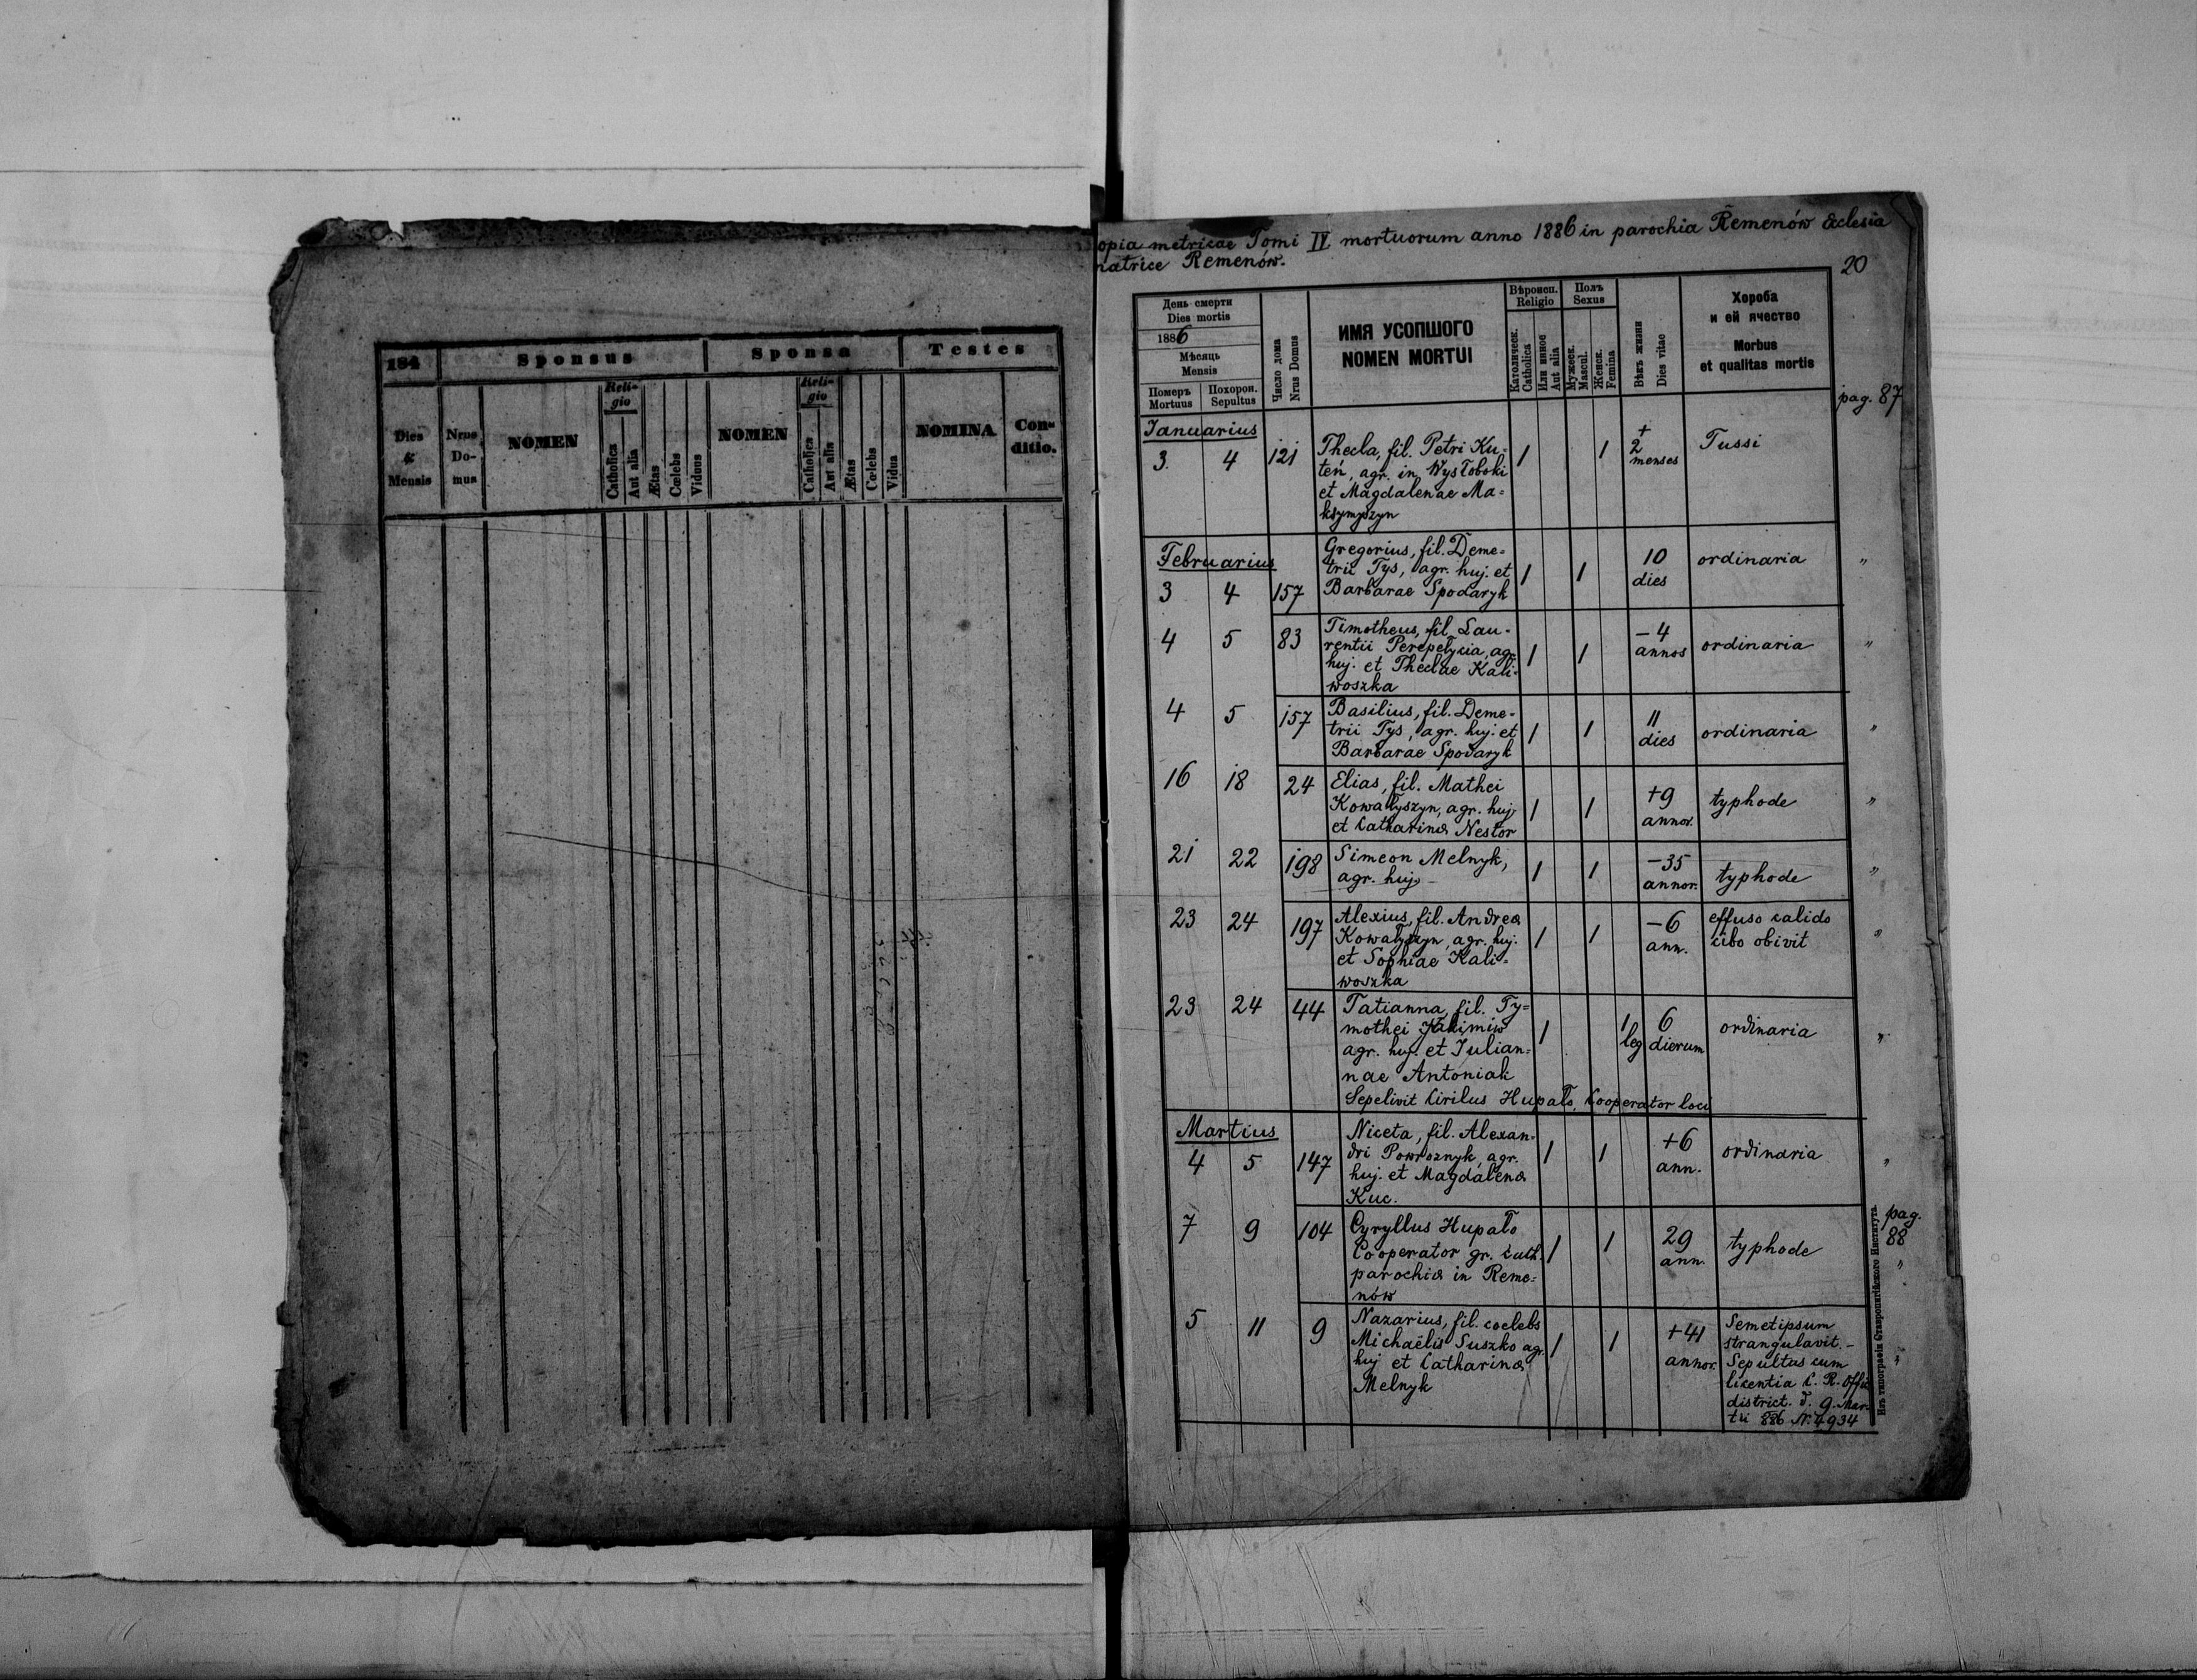 184
Sponsus
Sponsa
Testes
Dies
&
Mensis
Nrus
Do-
mus
NOMEN
Reli-
gio
Catholica
Aut alia
Ætas
Cœlebs
Viduus
NOMEN
Reli-
gio
Catholica
Aut alia
Ætas
Cœlebs
Vidua
NOMINA
Con-
ditio.
opia metricae Tomi IV mortuorum anno 1886 in parochia Remenów Ecclesia
matrice Remenów.
20
День смерти
Dies mortis
1886
Мѣсяць
Mensis
Померъ
Mortuus
Похорон.
Sepultus
Число дома
Nrus Domus
ИМЯ УСОПШОГО
NOMEN MORTUI
Вѣроисп.
Religio
Католическ.
Catholica
Или инное
Aut alia
Полъ
Sexus
Мужеск.
Mascul.
Женск.
Femina
Вѣкъ жизни
Dies vitae
Хороба
и ей ячество
Morbus
et qualitas mortis
pag. 87
Januarius
3. 4 121 Thecla, fil. Petri Ku-
teń, agr. in Wysłoboki
et Magdalenae Ma-
ksymyszyn
1 1 +
2
menses
Tussi
Februarius
3 4 157 Gregorius, fil. Deme-
trii Tys, agr. huj. et
Barbarae Spodaryk
1 1 10
dies
ordinaria "
4 5 83 Timotheus, fil. Lau-
rentii Perepełycia, agr.
huj. et Theclae Kali-
woszka
1 1 -4
annos
ordinaria "
4 5 157 Basilius, fil. Deme-
trii Tys, agr. huj. et
Barbarae Spodaryk
1 1 11
dies
ordinaria "
16 18 24 Elias, fil. Mathei
Kowałyszyn, agr. huj.
et Catharinæ Nestor
1 1 +9
annor.
typhode "
21 22 198 Simeon Melnyk,
agr. huj. -
1 1 -35
annor.
typhode "
23 24 197 Alexius, fil. Andreæ
Kowałyszyn, agr. huj.
et Sophiae Kali-
woszka
1 1 -6
ann.
effuso calido
cibo obivit "
23 24 44 Tatianna, fil. Ty-
mothei Jakimiw
agr. huj. et Julian-
nae Antoniak
1 1
leg
6
dierum
ordinaria "
Sepelivit Cirilus Hupało, Cooperator loci
Martius
4 5 147 Niceta, fil. Alexan-
dri Powroznyk, agr.
huj. et Magdalenæ
Kuc.
1 1 +6
ann.
ordinaria "
pag.
88
7 9 104 Cyryllus Hupało
Cooperator gr. cath.
parochiæ in Reme-
nów
1 1 29
ann.
typhode "
5 11 9 Nazarius, fil. coelebs
Michaëlis Suszko agr.
huj et Catharinæ
Melnyk
1 1 +41
annor.
Semetipsum
strangulavit. -
Sepultus cum
licentia C. R. Offic
district. d. 9. Mar-
tii 886 N. 4934 "
Изъ типографіи Ставропигійского Института.